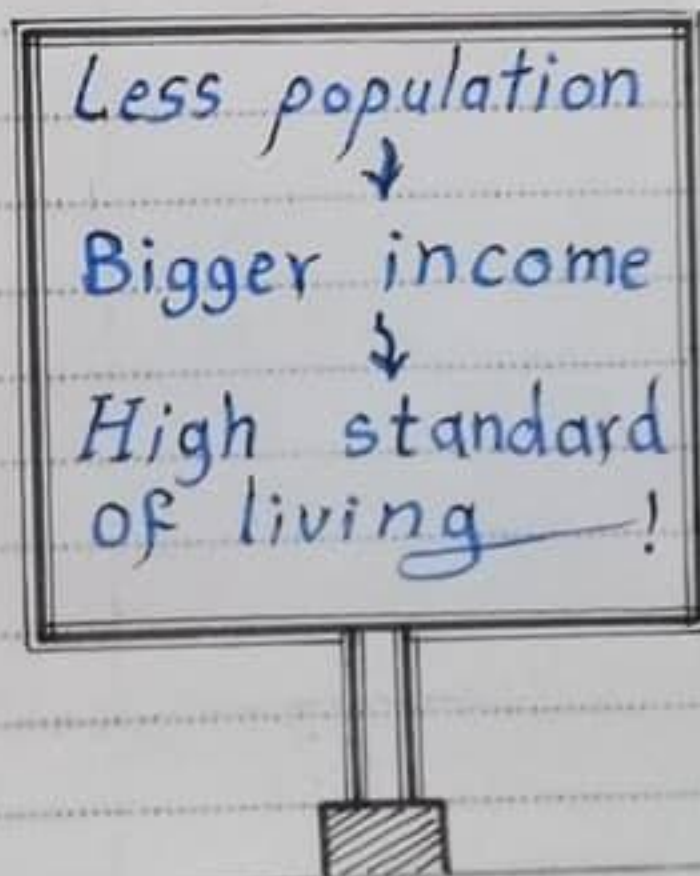 Less population
↓
Bigger income
↓
High standard
of living !